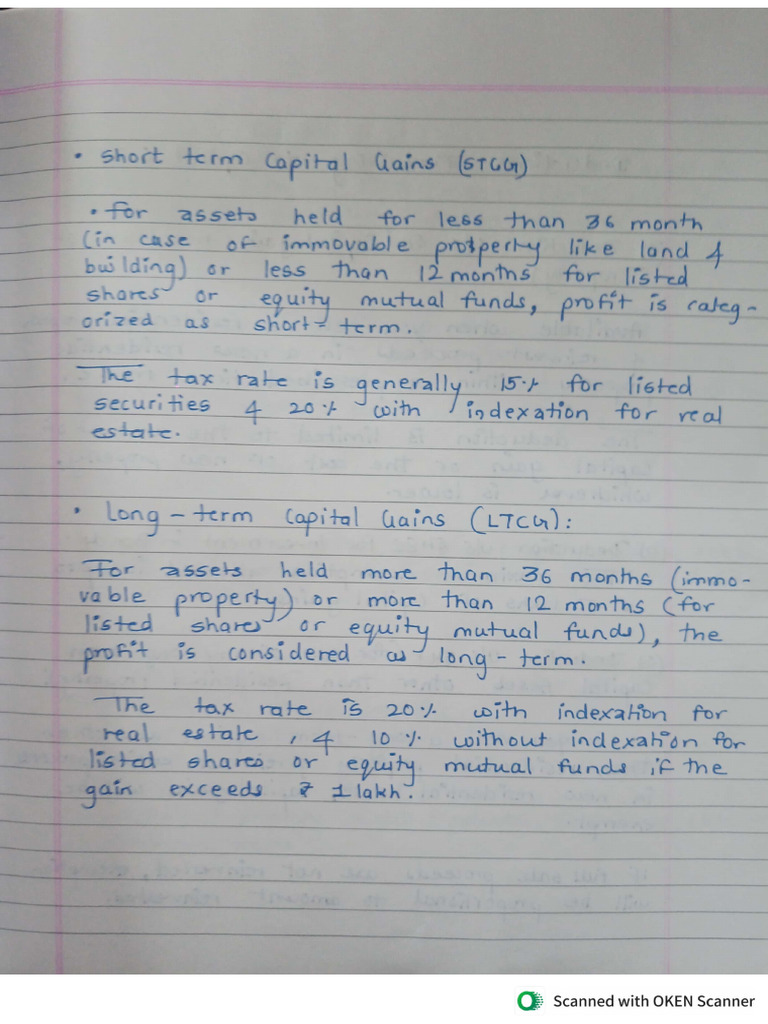 • Short term Capital Gains (STCG)
• for assets held for less than 36 month
(in case of immovable property like land &
building) or less than 12 months for listed
shares or equity mutual funds, profit is categ-
orized as short-term.
The tax rate is generally 15% for listed
securities & 20% with indexation for real
estate.
• Long-term Capital Gains (LTCG):
For assets held more than 36 months (immo-
vable property) or more than 12 months (for
listed shares or equity mutual funds), the
profit is considered as long-term.
The tax rate is 20% with indexation for
real estate, & 10% without indexation for
listed shares or equity mutual funds if the
gain exceeds ₹ 1 lakh.
Scanned with OKEN Scanner